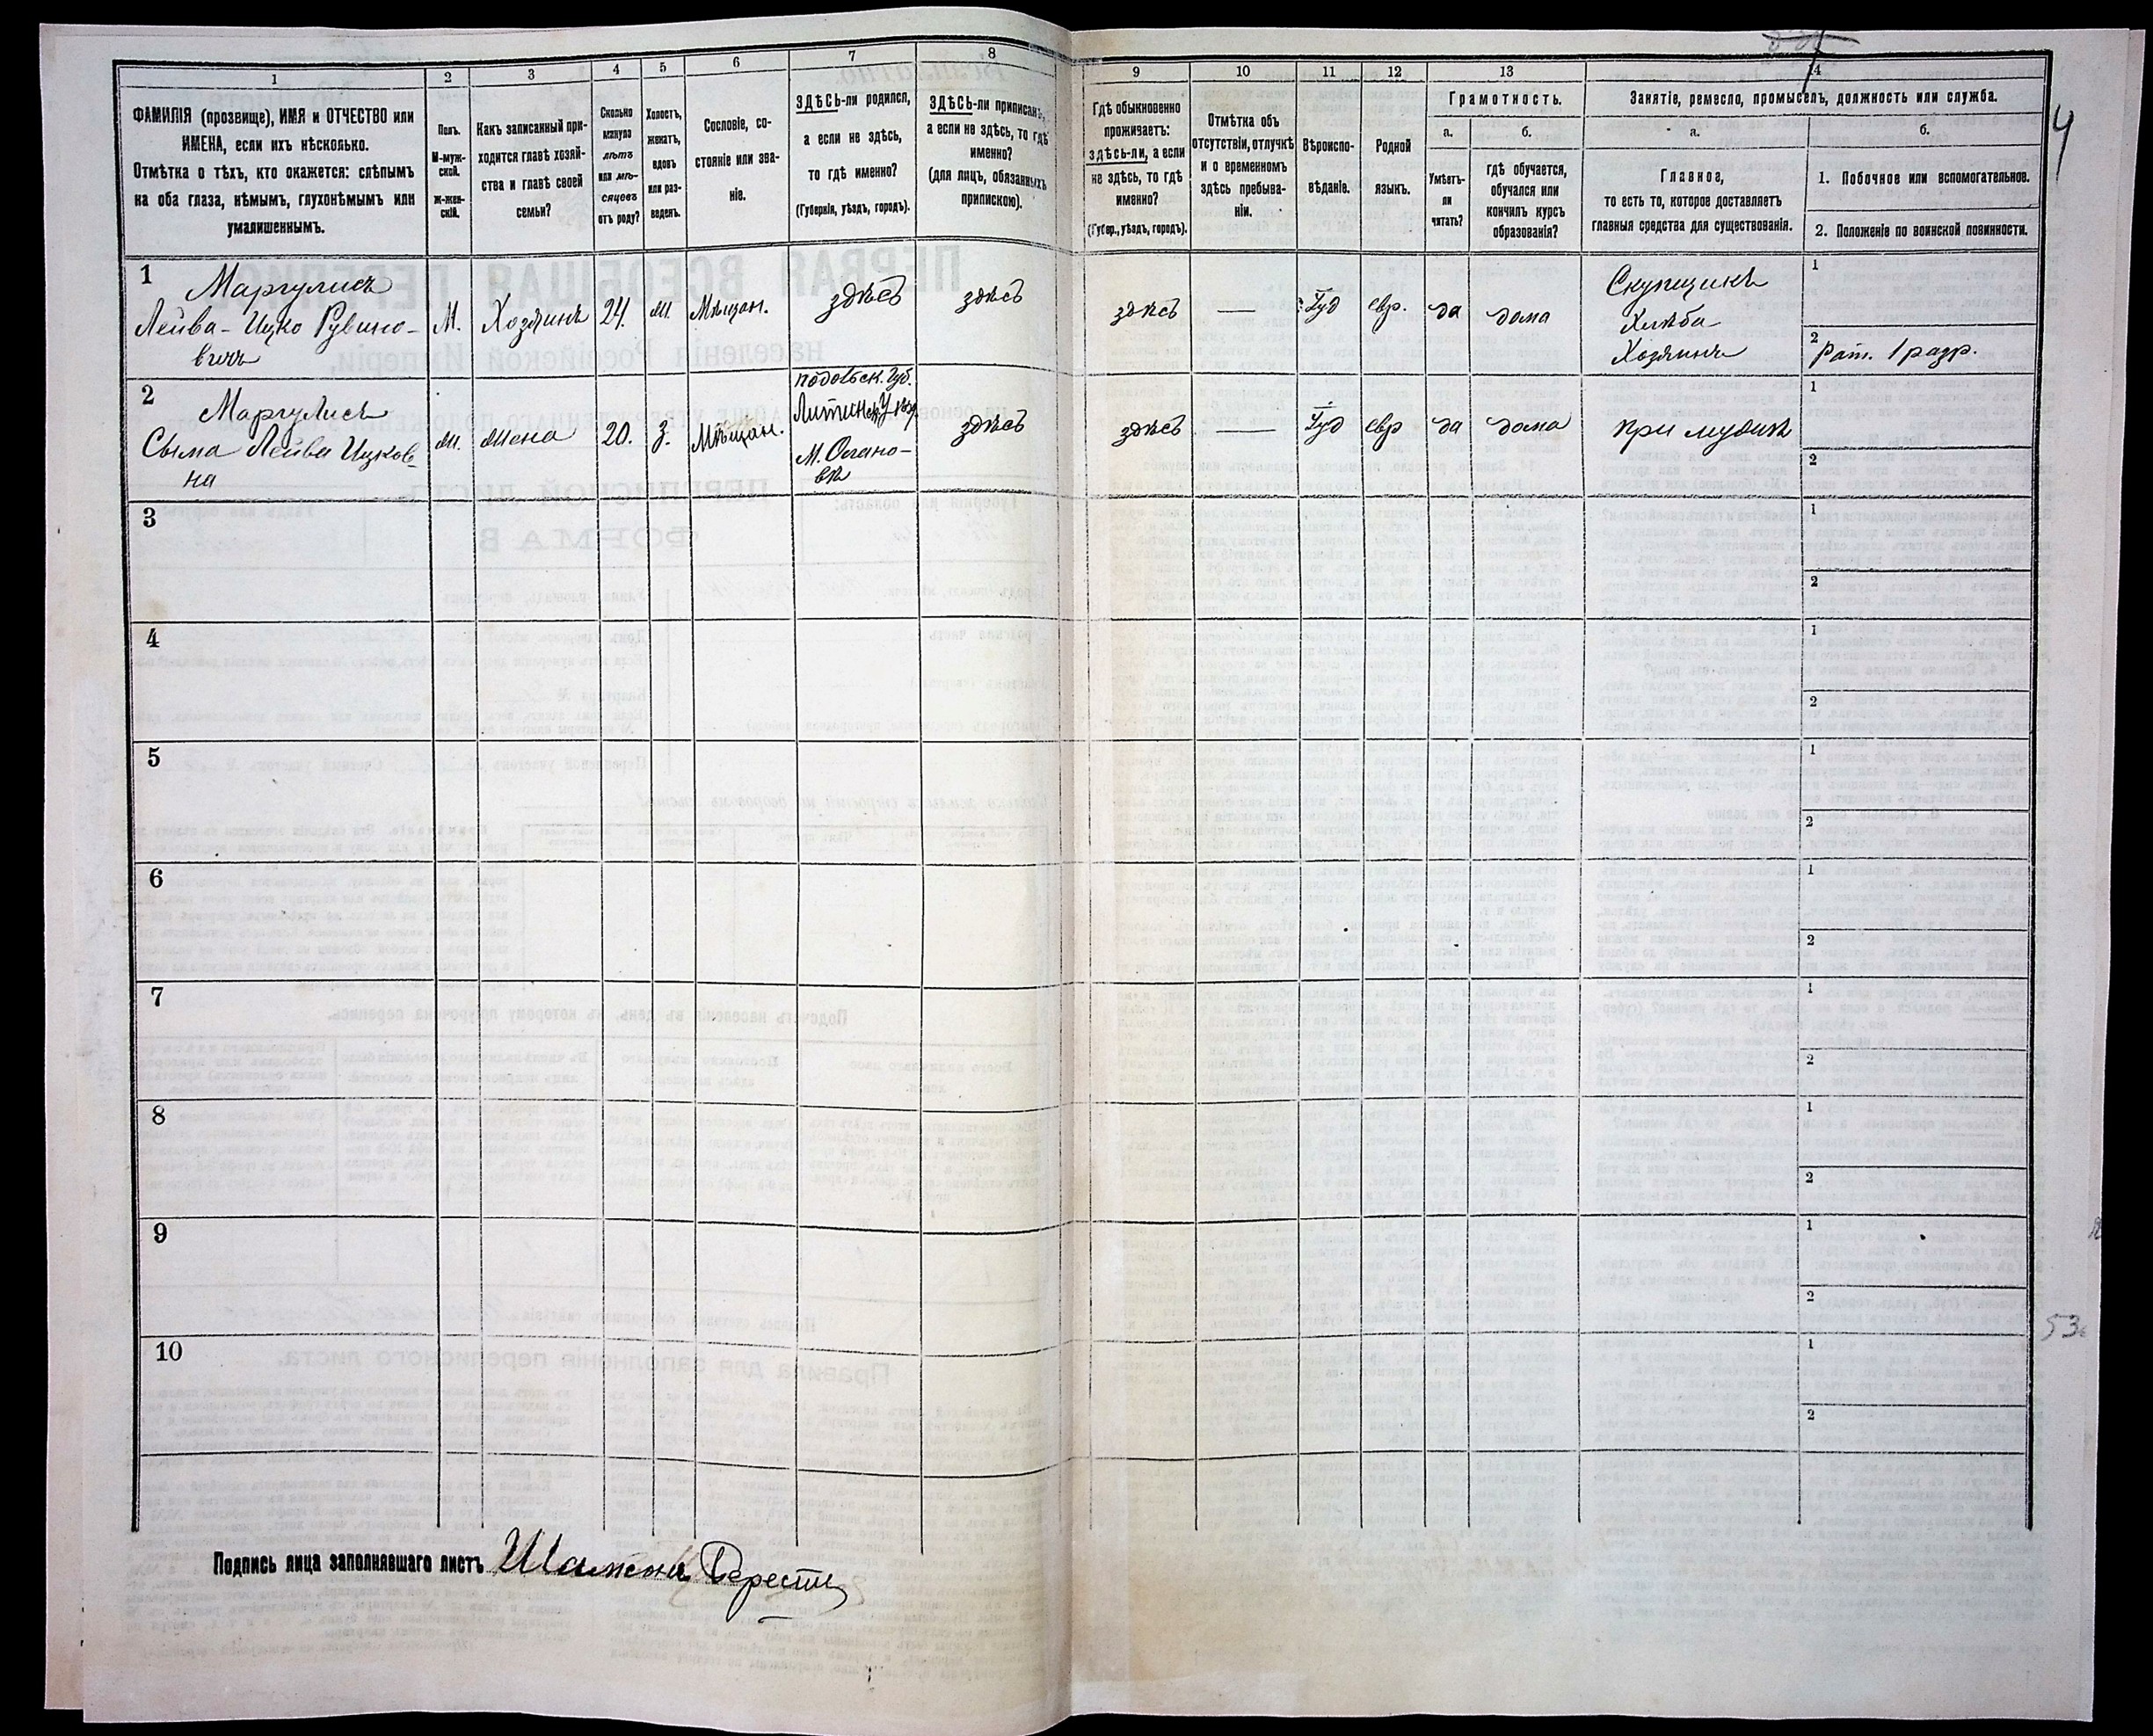 1 2 3 4 5 6 7 8 9 10 11 12 13 14
ФАМИЛІЯ (прозвище), ИМЯ и ОТЧЕСТВО или
ИМЕНА, если ихъ нѣсколько.
Отмѣтка о тѣхъ, кто окажется: слѣпымъ
на оба глаза, нѣмымъ, глухонѣмымъ или
умалишеннымъ.
Полъ.
М-муж-
ской.
Ж-жен-
скій.
Какъ записанный при-
ходится главѣ хозяй-
ства и главѣ своей
семьи?
Сколько
минуло
лѣтъ
или мѣ-
сяцевъ
отъ роду?
Холостъ,
женатъ,
вдовъ
или раз-
веденъ.
Сословіе, со-
стояніе или зва-
ніе.
ЗДѢСЬ-ли родился,
а если не здѣсь,
то гдѣ именно?
(Губернія, уѣздъ, городъ).
ЗДѢСЬ-ли приписанъ,
а если не здѣсь, то гдѣ
именно?
(для лицъ, обязанныхъ
припискою).
Гдѣ обыкновенно
проживаетъ:
здѣсь-ли, а если
не здѣсь, то гдѣ
именно?
(Губер., уѣздъ, городъ).
Отмѣтка объ
отсутствіи, отлучкѣ
и о временномъ
здѣсь пребыва-
ніи.
Вѣроиспо-
вѣданіе.
Родной
языкъ.
Грамотность.
а. б.
Умѣетъ-
ли
читать?
гдѣ обучается,
обучался или
кончилъ курсъ
образованія?
Занятіе, ремесло, промыселъ, должность или служба.
а. б.
Главное,
то есть то, которое доставляетъ
главныя средства для существованія.
1. Побочное или вспомогательное.
2. Положеніе по воинской повинности.
4
1
Маргулисъ
Лейва-Ицко Рувино-
вичъ
М.
Хозяинъ
24.
ж.
Мѣщан.
здѣсь
здѣсь
здѣсь
—
Іуд
евр.
да
дома
Скупщикъ
Хлѣба
Хозяинъ
1
2
Рат. 1 разр.
2
Маргулисъ
Сыма Лейва Ицков-
на
ж.
жена
20.
З.
Мѣщан.
подольск. губ.
М. Улано-
вѣ
здѣсь
здѣсь
—
Іуд
евр
да
дома
при мужѣ
1
2
3
1
2
4
1
2
5
1
2
6
1
2
7
1
2
8
1
2
9
1
2
10
1
2
53
Подпись лица заполнявшаго листъ